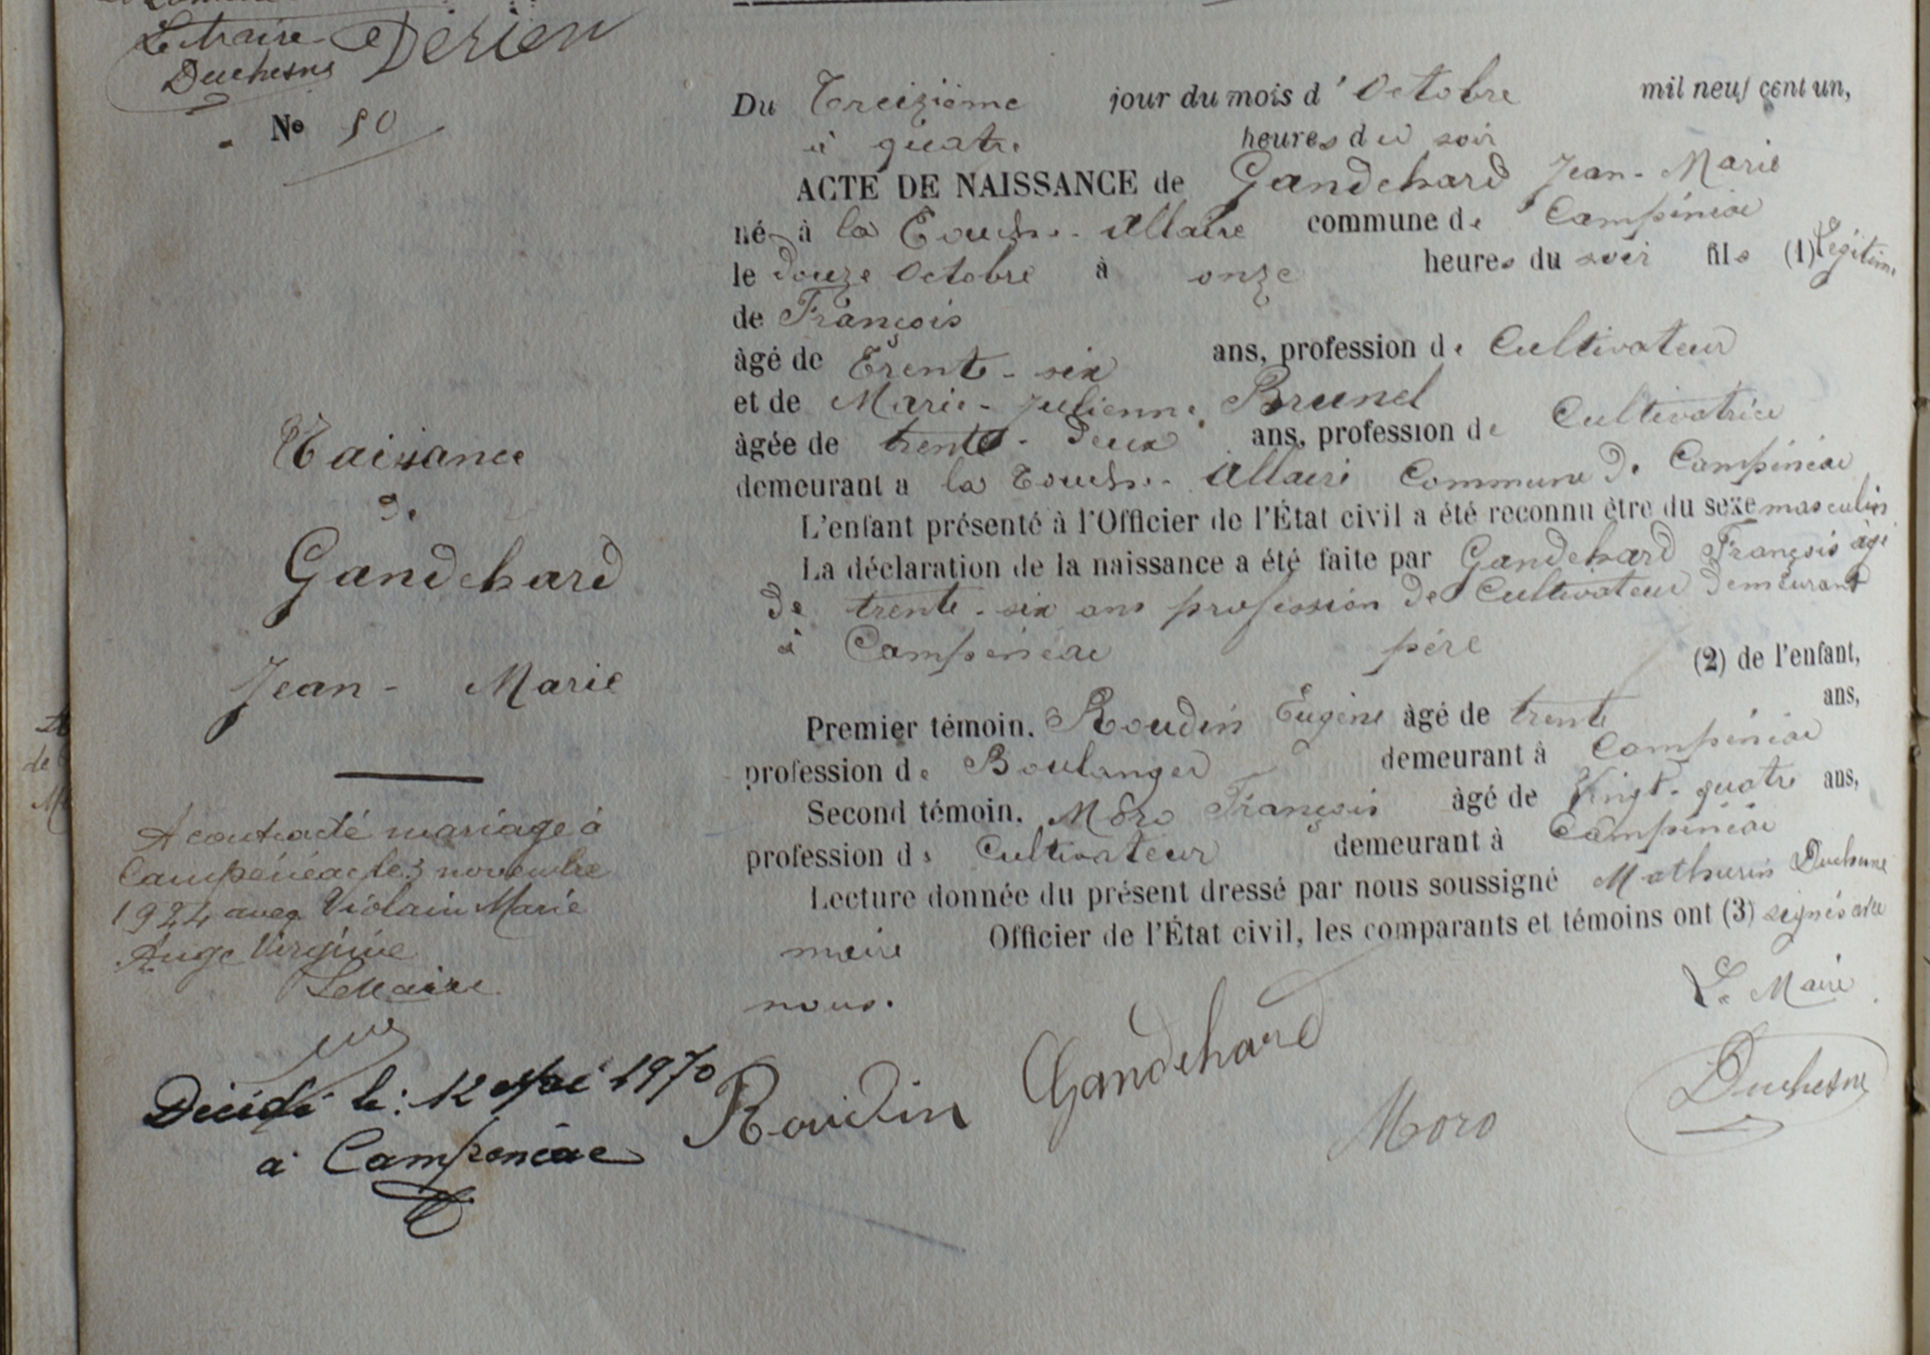 Le Maire
Duchesne
Derien
No 50
Naissance
de
Gandehard
Jean - Marie
A contracté mariage à
Campénéac le 3 novembre
1924 avec Violain Marie
Ange Virginie
Le Maire
Décédé le : 12 Mai 1970
à Campénéac
Du Treizième jour du mois d' Octobre mil neuf cent un,
à quatre heures du soir
ACTE DE NAISSANCE de Gandehard Jean - Marie
né à la Touche - Allaire commune de Campénéac
le douze Octobre à onze heures du soir fils (1) Légitime
de François
âgé de Trente - six ans, profession de Cultivateur
et de Marie - Julienne Brunel
âgée de trente - deux ans, profession de Cultivatrice
demeurant à la Touche - Allaire Commune de Campénéac
L'enfant présenté à l'Officier de l'État civil a été reconnu être du sexe masculin
La déclaration de la naissance a été faite par Gandehard François âgé
de trente - six ans profession de Cultivateur demeurant
à Campénéac père (2) de l'enfant,
Premier témoin, Roudin Eugène âgé de trente ans,
profession de Boulanger demeurant à Campénéac
Second témoin, Moro François âgé de Vingt - quatre ans,
profession de Cultivateur demeurant à Campénéac
Lecture donnée du présent dressé par nous soussigné Mathurin Duchesne
maire Officier de l'État civil, les comparants et témoins ont (3) signés avec
nous.
Le Maire
Roudin Gandehard Moro Duchesne